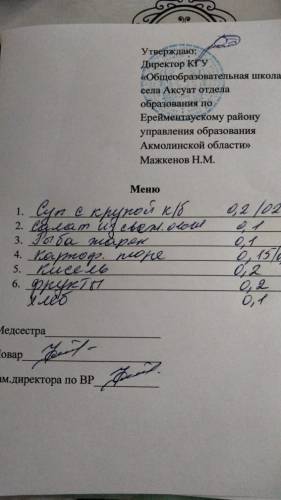 Утверждаю:
Директор КГУ
«Общеобразовательная школа
села Аксуат отдела
образования по
Ерейментаускому району
управления образования
Акмолинской области»
Мажкенов Н.М.
Меню
1. Суп с крупой к/б 0,2/02
2. салат из свеж. 0,1
3. Рыба жарен 0,1
4. картоф. пюре 0,15/
5. кисель 0,2
6. фрукты 0,2
хлеб 0,1
Медсестра
Повар
Зам.директора по ВР